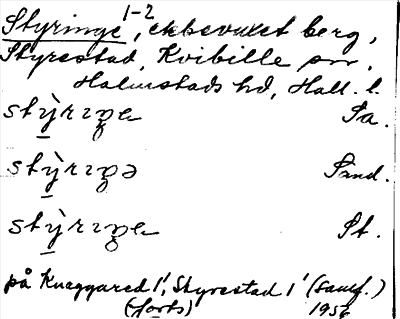 Styringe 1-2, ekbevuxet berg,
Styrestad, Kvibille sn,
Halmstads hd, Hall. l.
stỳrıŋe Sa.
stỳrıŋə Sand.
stỳrıŋe St.
på Knaggared 1¹, Skyrestad 1¹ (samf.)
(forts) 1956